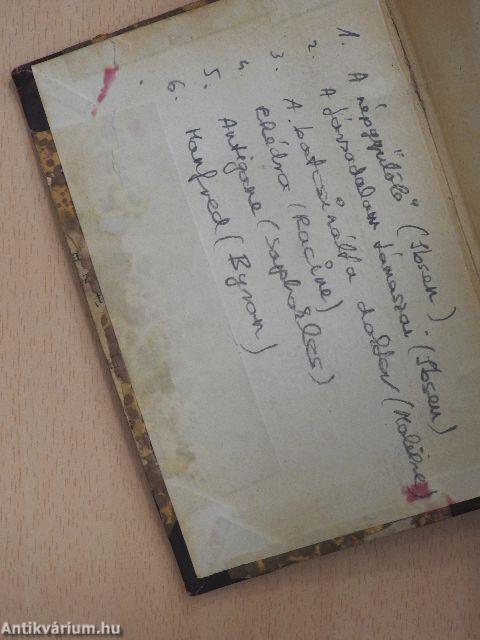 1. A népgyűlölő" (Ibsen)
2. A társadalom támaszai (Ibsen)
3. A botcsinálta doktor (Molière)
4. Phédra (Racine)
5. Antigone (Sophokles)
6. Manfred (Byron)
Antikvárium.hu